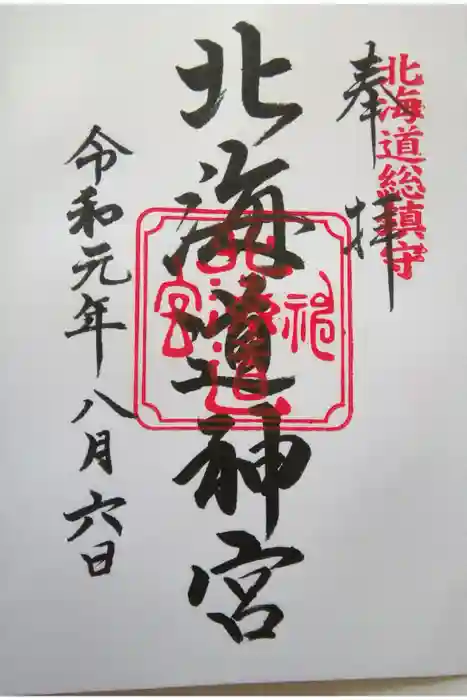 北海道総鎮守
奉拝
北海道神宮
北海道神宮
令和元年八月六日